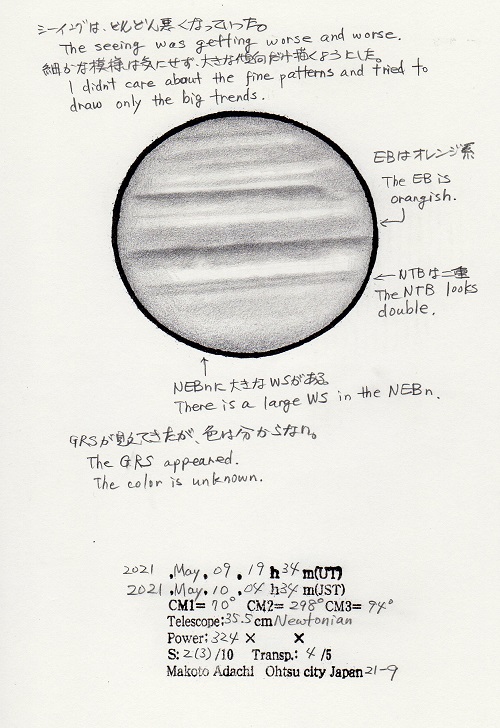 シーイングは、どんどん悪くなっていった。
The seeing was getting worse and worse.
細かな模様は気にせず、大きな傾向だけ描くようにした。
I didn't care about the fine patterns and tried to
draw only the big trends.
EBはオレンジ系
The EB is
orangish.
NTBは二重
The NTB looks
double.
NEBnに大きなWSがある
There is a large WS in the NEBn.
GRSが見えてきたが、色は分からない。
The GRS appeared.
The color is unknown.
2021 .May. 09 . 19 h 34 m(UT)
2021 .May. 10 . 04 h 34 m(JST)
CM1= 70° CM2= 298° CM3= 94°
Telescope: 35.5 cm Newtonian
Power: 324 × ×
S: 2(3) /10 Transp.: 4 /5
Makoto Adachi Ohtsu city Japan 21-9